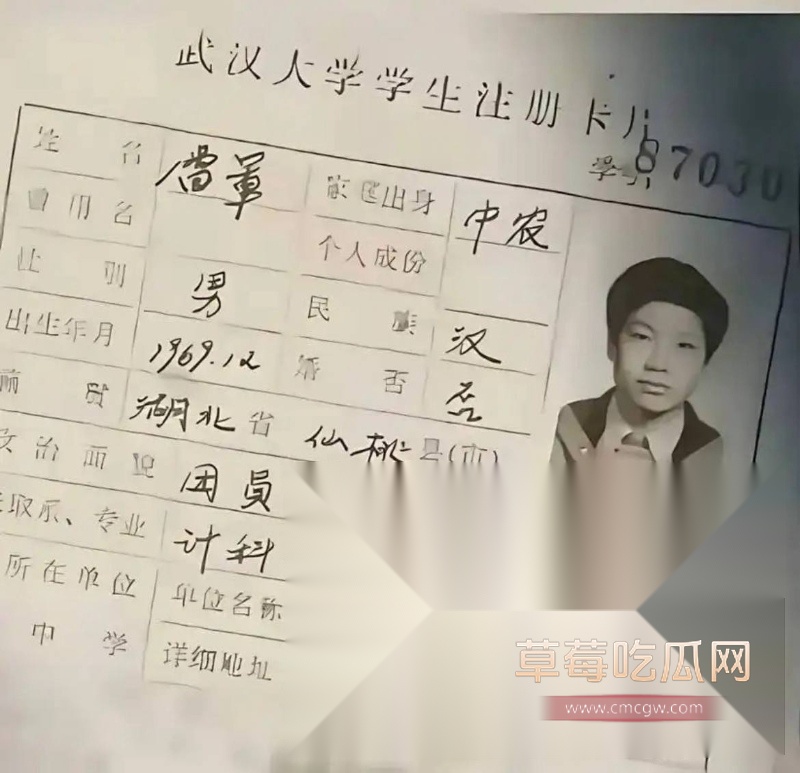 武汉大学学生注册卡片
学号 87030
姓名 家庭出身 中农
曾用名 个人成份
性别 男 民族 汉
出生年月 1969.12 婚否 否
贯 湖北省 仙桃县(市)
政治面 团員
录取系、专业 计科
所在单位 单位名称
中学 详细地址
草莓吃瓜网
www.cmcgw.com